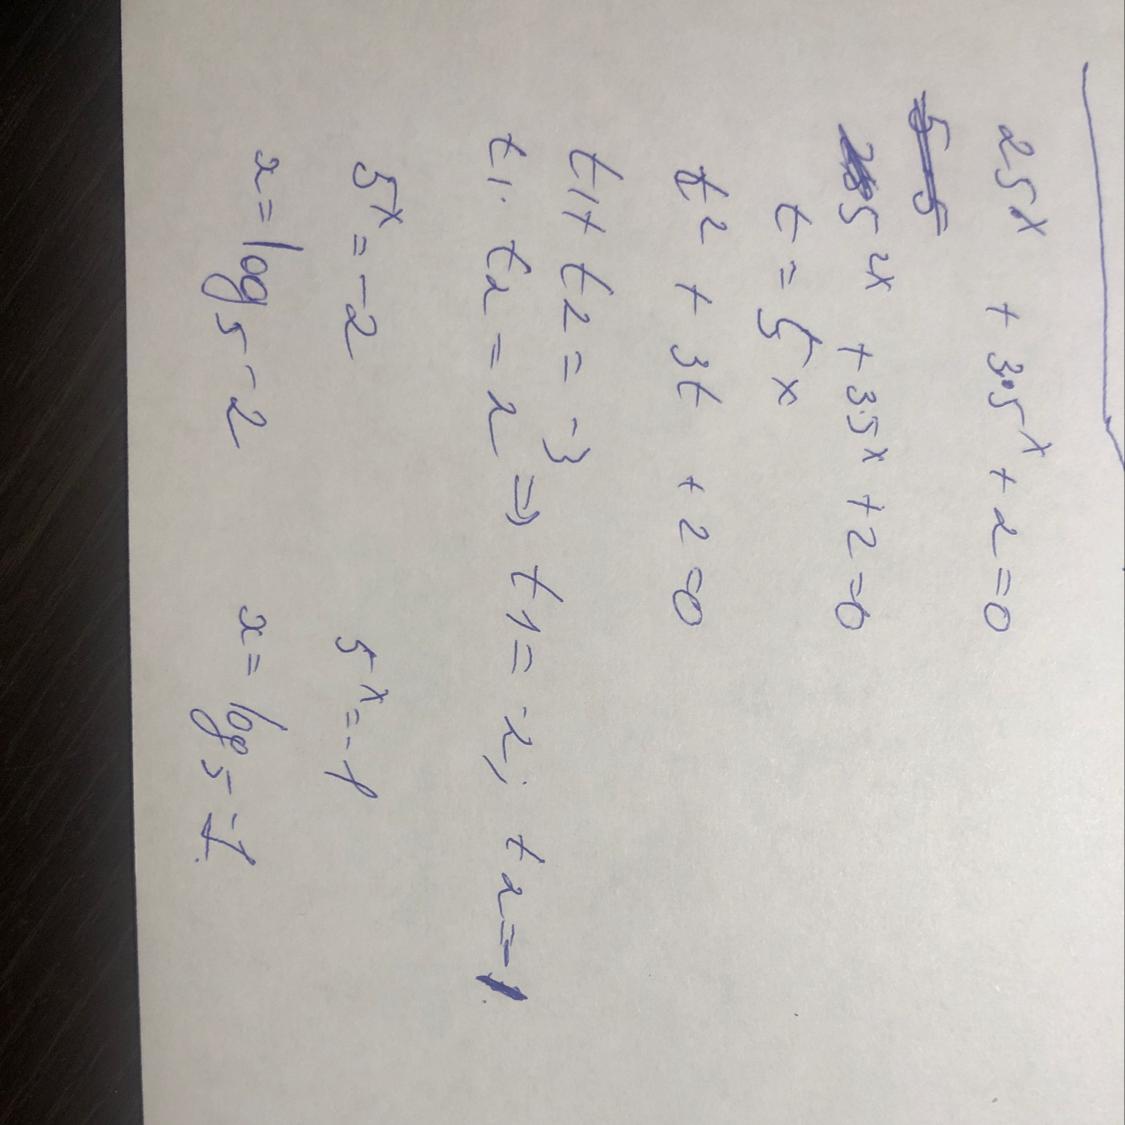 25^x + 3·5^x + 2 = 0
5^2x + 3·5^x + 2 = 0
t = 5^x
t^2 + 3t + 2 = 0
t1 + t2 = -3
t1 · t2 = 2 => t1 = -2; t2 = -1
5^x = -2 5^x = -1
x = log5 -2 x = log5 -1